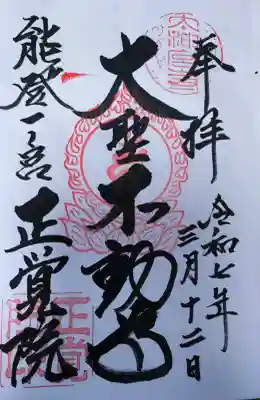 奉拝
令和七年
三月十二日
大聖不動尊
能登一ノ宮
正覚院
正覚